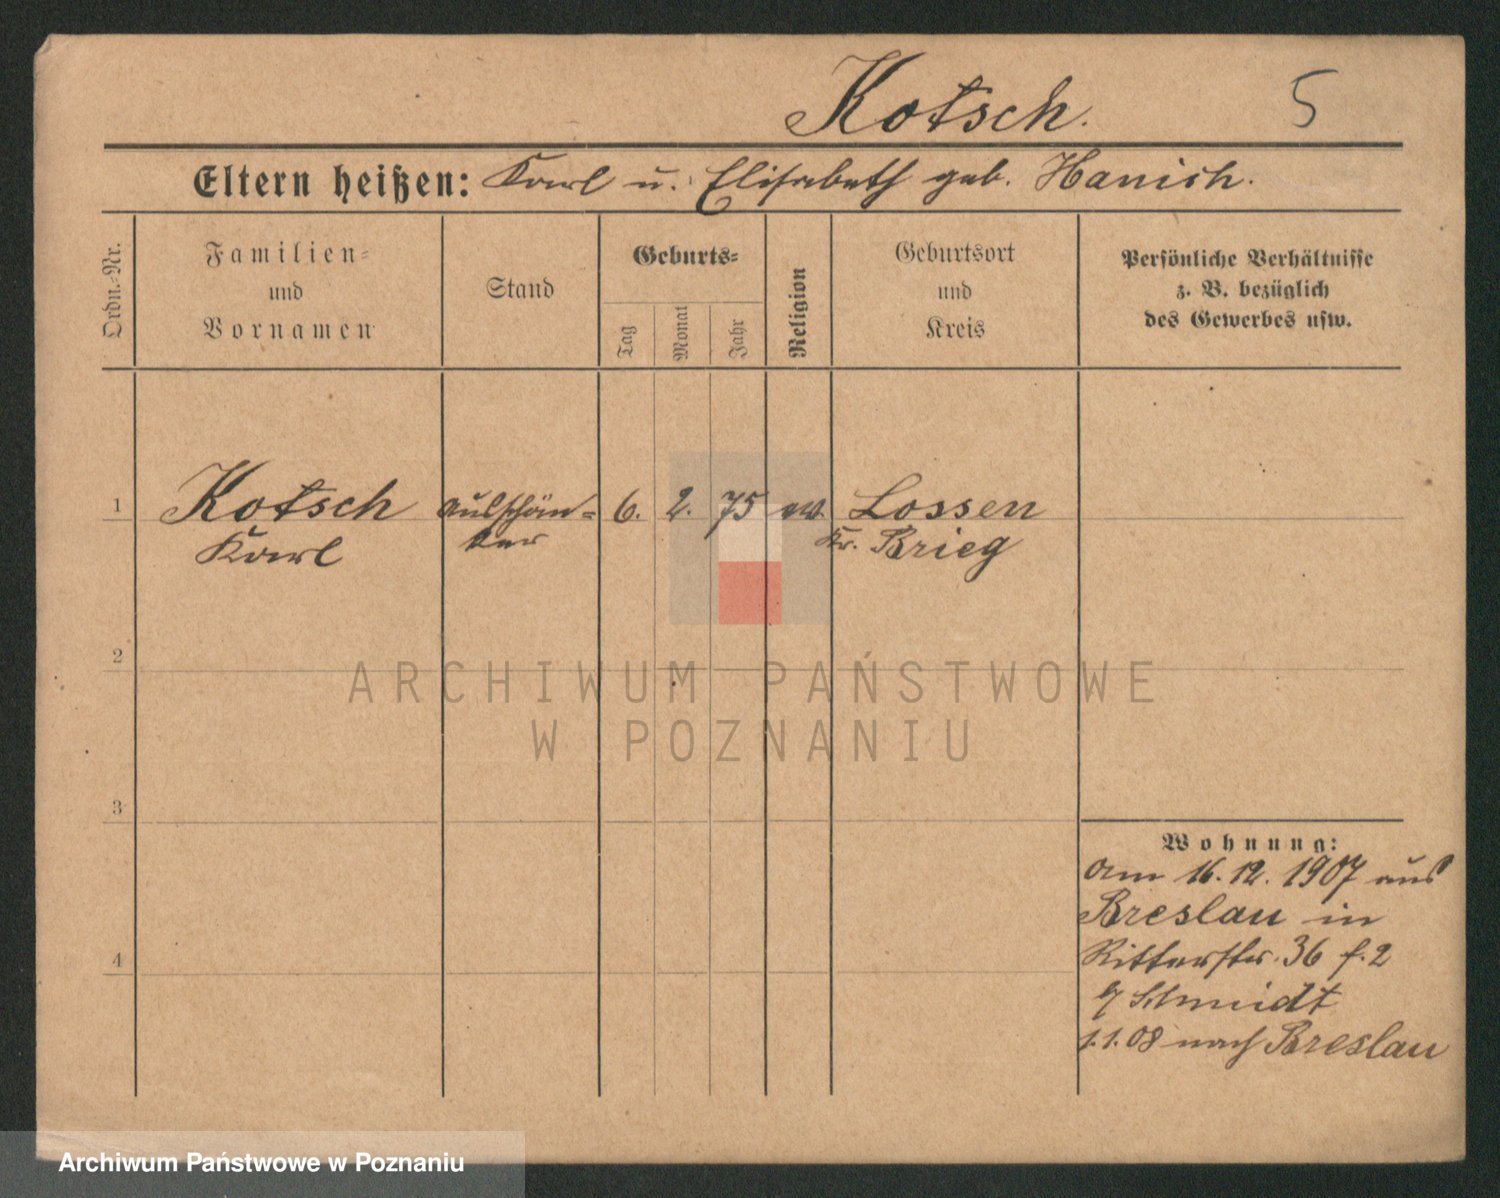 Kotsch. 5
Eltern heißen: Karl u. Elisabeth geb. Hanich.
Ordn.-Nr.
Familien-
und
Vornamen
Stand
Geburts-
Tag
Monat
Jahr
Religion
Geburtsort
und
Kreis
Persönliche Verhältnisse
z. B. bezüglich
des Gewerbes usw.
1 Kotsch 6. 2. 75 ev. Lossen
Karl Kr. Brieg
2
3
4
Wohnung:
Am 16.12.1907 aus
Breslau in
Ritterstr. 36 f. 2
b/ Schmidt
1.1.08 nach Breslau
ARCHIWUM PAŃSTWOWE
W POZNANIU
Archiwum Państwowe w Poznaniu